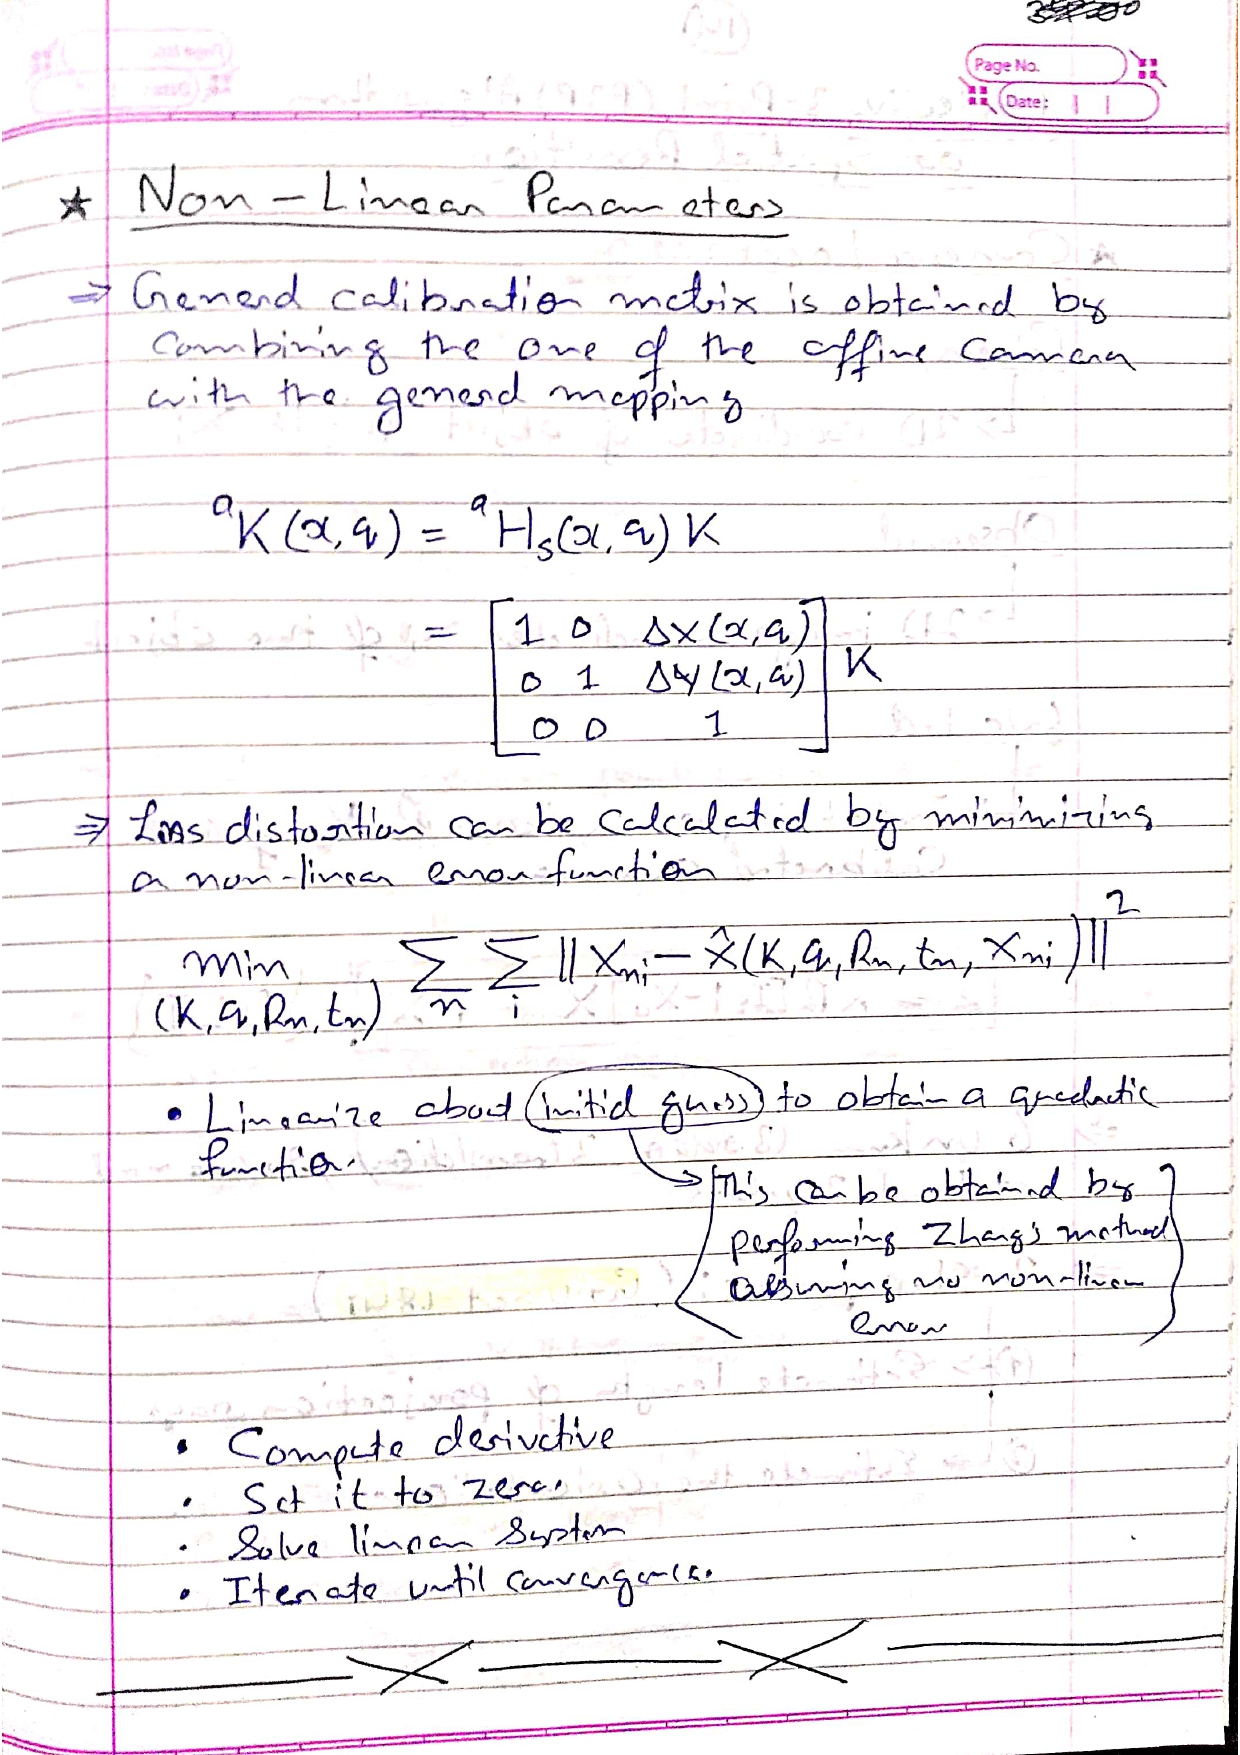 Page No.
Date:
★ Non-Linear Parameters
⇒ General calibration matrix is obtained by
combining the one of the affine camera
with the general mapping
ᵃK(x,q) = ᵃHₛ(x,q) K
= [1 0 Δx(x,q)
0 1 Δy(x,q)
0 0 1] K
⇒ Lens distortion can be calculated by minimizing
a non-linear error function
min (K,q,Rn,tn) Σn Σi ||Xni - x̂(K,q,Rn,tn,Xni)||²
• Linearize about (initial guess) to obtain a quadratic
function.
→ [This can be obtained by
performing Zhang's method
assuming no non-linear
error]
• Compute derivative
• Set it to zero.
• Solve linear system
• Iterate until convergence.